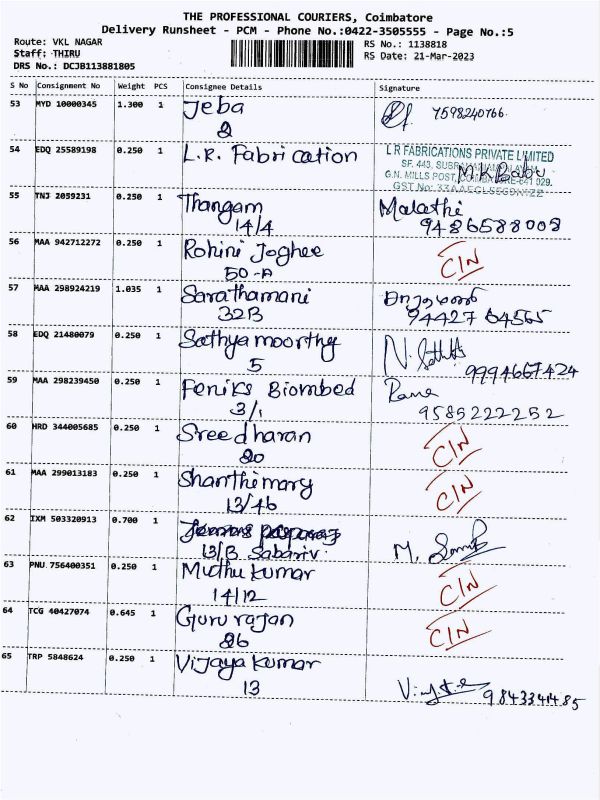 THE PROFESSIONAL COURIERS, Coimbatore
Delivery Runsheet - PCM - Phone No.:0422-3505555 - Page No.:5
Route: VKL NAGAR
RS No.: 1138818
Staff: THIRU
RS Date: 21-Mar-2023
DRS No.: DCJB113881805
S No Consignment No Weight PCS Consignee Details Signature
53 MYD 10000345 1.300 1 Jeba 7598240766
2
54 EDQ 25589198 0.250 1 L.R. Fabrication L R FABRICATIONS PRIVATE LIMITED
SF. 443,
M.K Babu
G.N. MILLS POST, 641 029.
GST No:
55 TNJ 2059231 0.250 1 Thangam Malathi
14/4 9486588008
56 MAA 942712272 0.250 1 Rohini Joghee C/N
50-A
57 MAA 298924219 1.035 1 Sarathamani
32B 94427 64565
58 EDQ 21480079 0.250 1 Sathyamoorthy
5 9994667424
59 MAA 298239450 0.250 1 Feniks Biombed Rama
3/1 9585222252
60 HRD 344005685 0.250 1 Sreedharan C/N
20
61 MAA 299013183 0.250 1 Shanthimary C/N
13/46
62 IXM 503320913 0.700 1
13/B M.
63 PNU 756400351 0.250 1 Muthukumar C/N
14/12
64 TCG 40427074 0.645 1 Gururajan C/N
26
65 TRP 5848624 0.250 1 Vijayakumar
13 9843341485